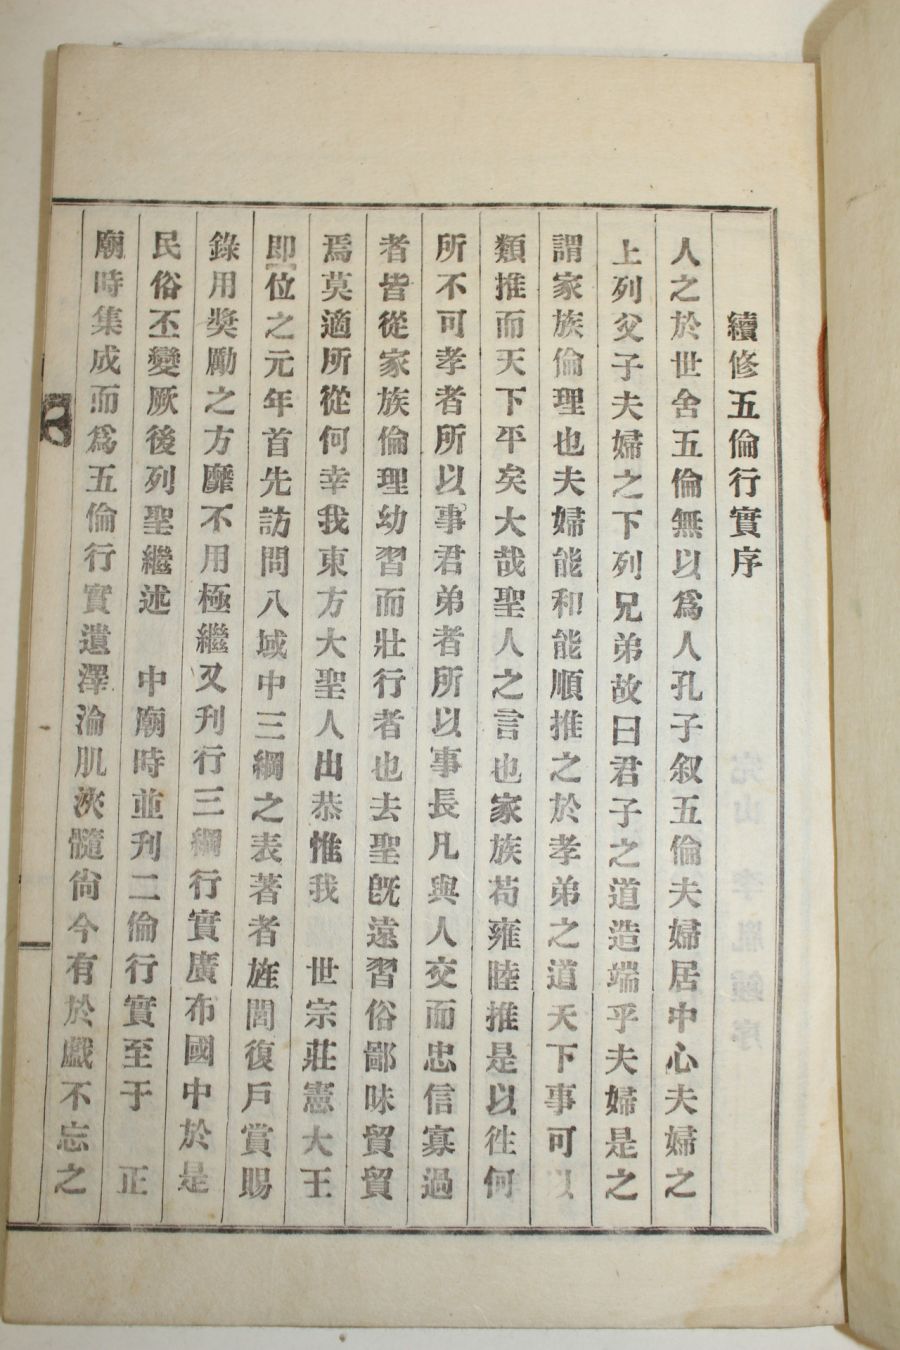 續修五倫行實序
人之於世舍五倫無以爲人孔子叙五倫夫婦居中心夫婦之
上列父子夫婦之下列兄弟故曰君子之道造端乎夫婦是之
謂家族倫理也夫婦能和能順推之於孝弟之道天下事可以
類推而天下平矣大哉聖人之言也家族苟雍睦推是以徃何
所不可孝者所以事君弟者所以事長凡與人交而忠信寡過
者皆從家族倫理幼習而壯行者也去聖旣遠習俗鄙昧貿貿
焉莫適所從何幸我東方大聖人出恭惟我 世宗莊憲大王
即位之元年首先訪問八域中三綱之表著者旌閭復戶賞賜
錄用奬勵之方靡不用極繼又刋行三綱行實廣布國中於是
民俗丕變厥後列聖繼述 中廟時並刋二倫行實至于 正
廟時集成而爲五倫行實遺澤淪肌浹髓尙今有於戲不忘之